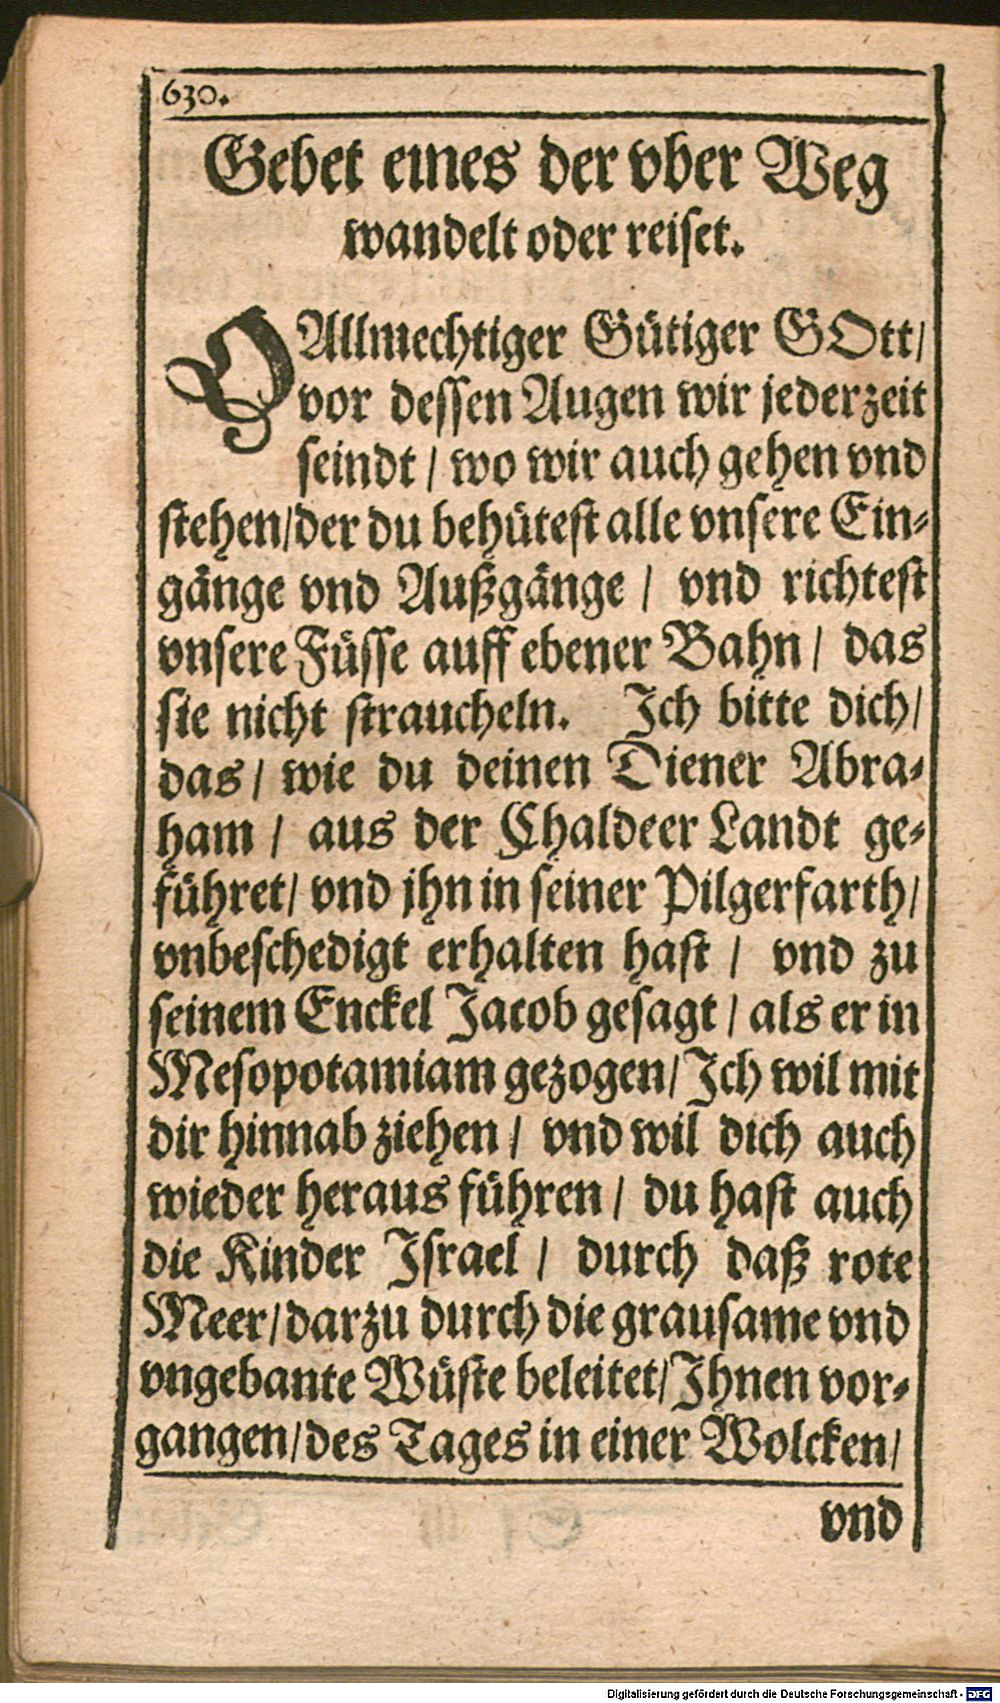 630.
Gebet eines der vber Weg
wandelt oder reiset.
O Allmechtiger Gütiger GOtt/
vor dessen Augen wir jederzeit
seindt / wo wir auch gehen vnd
stehen/der du behütest alle vnsere Ein-
gänge vnd Außgänge / vnd richtest
vnsere Füsse auff ebener Bahn / das
sie nicht straucheln. Ich bitte dich/
das / wie du deinen Diener Abra-
ham / aus der Chaldeer Landt ge-
führet/ vnd jhn in seiner Pilgerfarth/
vnbeschedigt erhalten hast / vnd zu
seinem Enckel Jacob gesagt / als er in
Mesopotamiam gezogen/Ich wil mit
dir hinnab ziehen / vnd wil dich auch
wieder heraus führen / du hast auch
die Kinder Israel / durch daß rote
Meer/darzu durch die grausame vnd
vngebante Wüste beleitet/Ihnen vor-
gangen/des Tages in einer Wolcken/
vnd
Digitalisierung gefördert durch die Deutsche Forschungsgemeinschaft - DFG